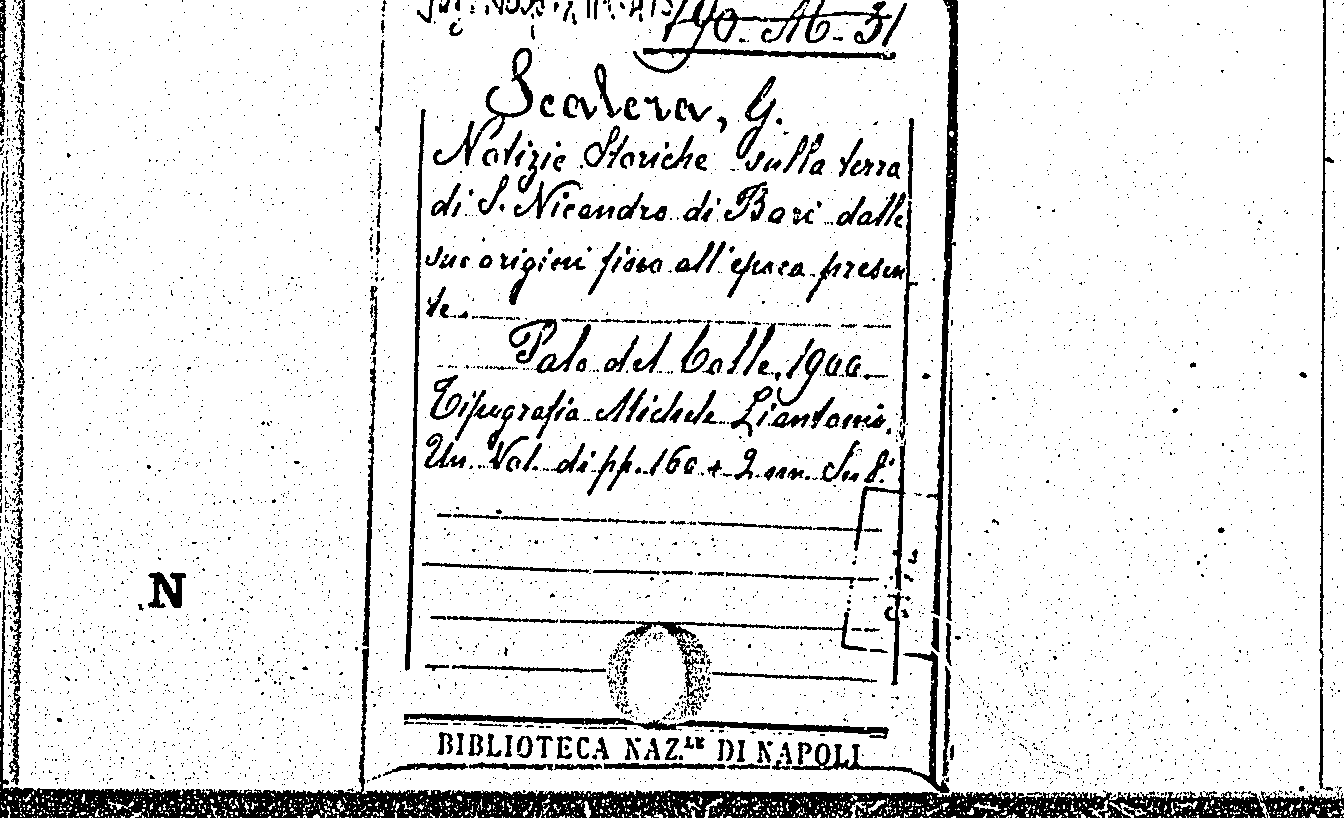 190-M-31
Scalera, G.
Notizie Storiche sulla terra
di S. Nicandro di Bari dalle
sue origini fino all'epoca presen
te.
Palo del Colle, 1900.
Tipografia Michele Liantonio.
Un Vol. di pp. 160 + 2 nn. In 8.°
N
BIBLIOTECA NAZ.LE DI NAPOLI